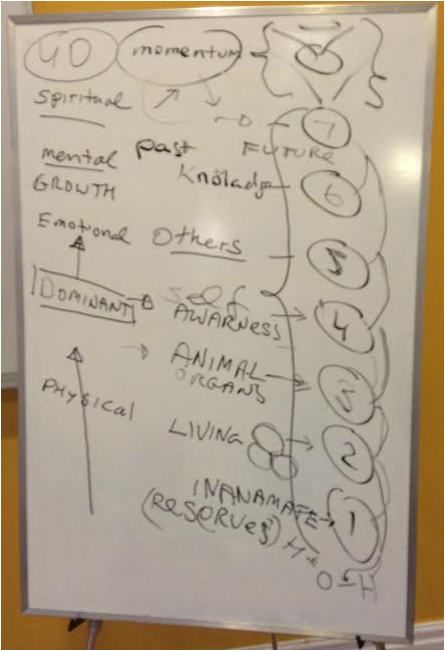 4D momentum
spiritual
7
past FUTURE
mental
Knöladge 6
GROWTH
Emotional Others 5
DOMINANT self
AWARNESS 4
ANIMAL
ORGANS 3
PHYSICAL
LIVING 2
INANAMATE 1
(RESERVES)
H
O-H